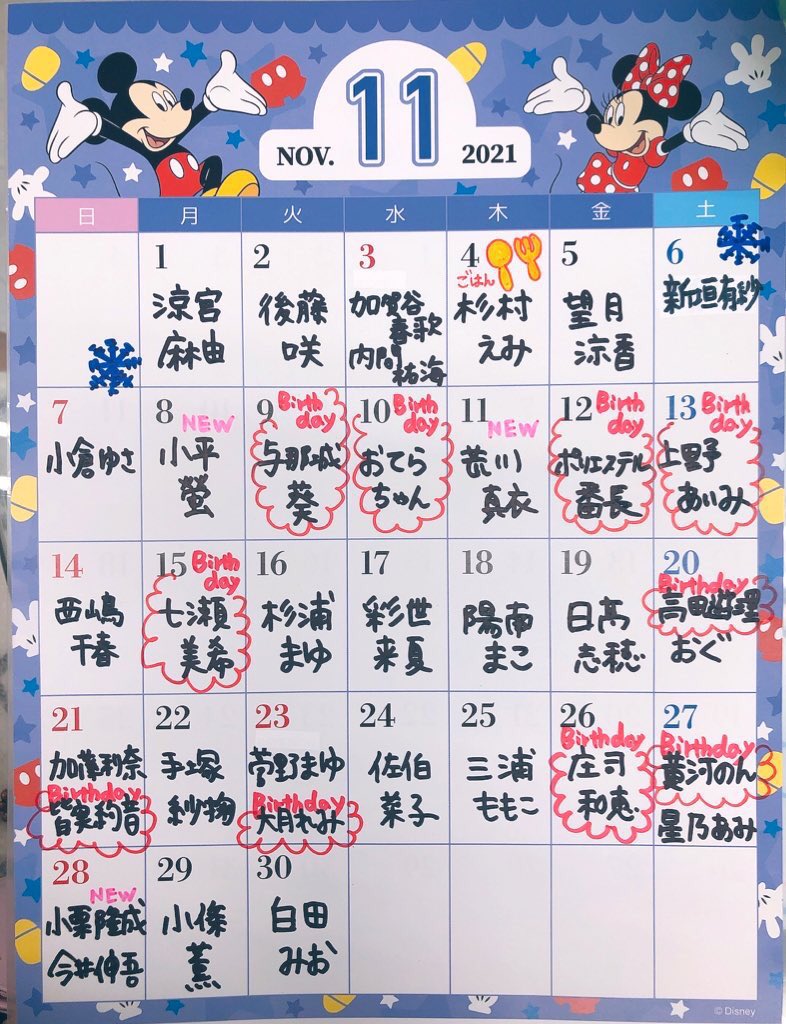 NOV.
11
2021
日 月 火 水 木 金 土
1
涼宮
麻由
2
後藤
咲
3
加賀谷
春歌
内間
祐海
4
ごはん
杉村
えみ
5
望月
涼香
6
新垣有紗
7
小倉ゆさ
8
NEW
小平
螢
9
Birth
day
与那城
葵
10
Birth
day
おてら
ちゃん
11
NEW
荒川
真衣
12
Birth
day
ポリエステル
番長
13
Birth
day
上野
あいみ
14
西嶋
千春
15
Birth
day
七瀬
美希
16
杉浦
まゆ
17
彩世
来夏
18
陽南
まこ
19
日髙
志穂
20
Birthday
高田遊理
おぐ
21
加藤利奈
Birthday
皆実莉音
22
手塚
紗物
23
菅野まゆ
Birthday
大月れみ
24
佐伯
菜子
25
三浦
ももこ
26
Birthday
庄司
和恵
27
Birthday
黄河のん
星乃あみ
28
NEW
小栗隆成
今井伸吾
29
小條
薫
30
白田
みお
© Disney